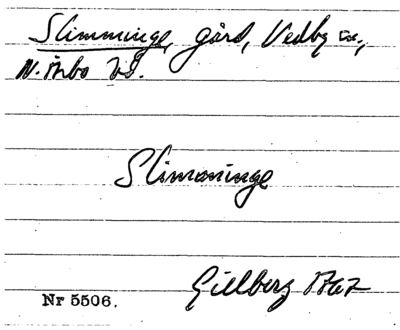 Slimminge, gård, Vedby sn,
N. Åsbo hd.
Slimminge
Gillberg 1767
Nr 5506.